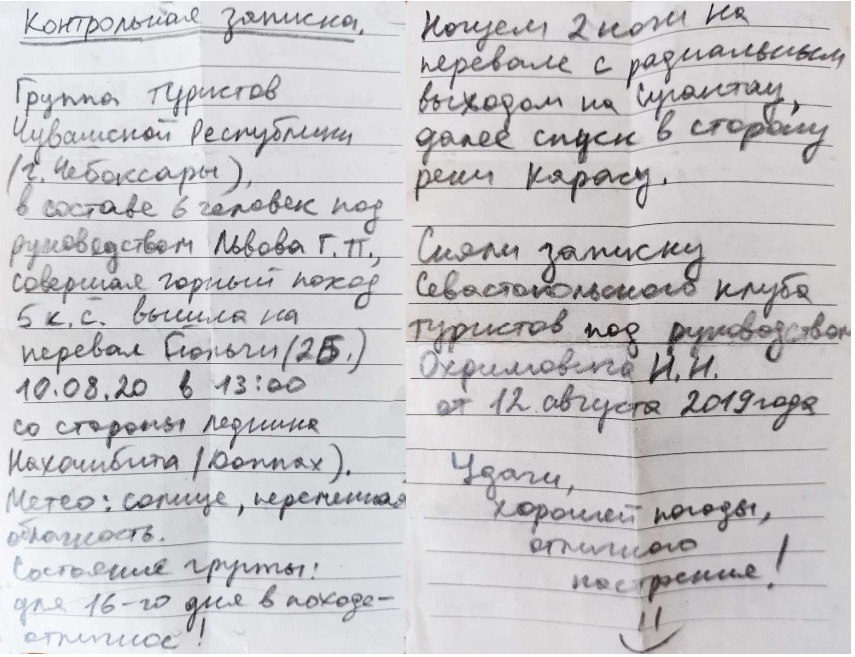 Контрольная записка.
Группа туристов
Чувашской Республики
(г. Чебоксары),
в составе 6 человек под
руководством Львова Г.П.,
совершая горный поход
5 к.с. вышла на
перевал Гюльчи (2Б.)
10.08.20 в 13:00
со стороны ледника
Нахашбита (Доппах).
Метео: солнце, переменная
облачность.
Состояние группы:
для 16-го дня в походе-
отличное!
Ночуем 2 ночи на
перевале с радиальным
выходом на Сугантау,
далее спуск в сторону
реки Карасу.
Сняли записку
Севастопольского клуба
туристов под руководством
Охримовича Н.Н.
от 12 августа 2019 года
Удачи,
хорошей погоды,
отличного
настроения!